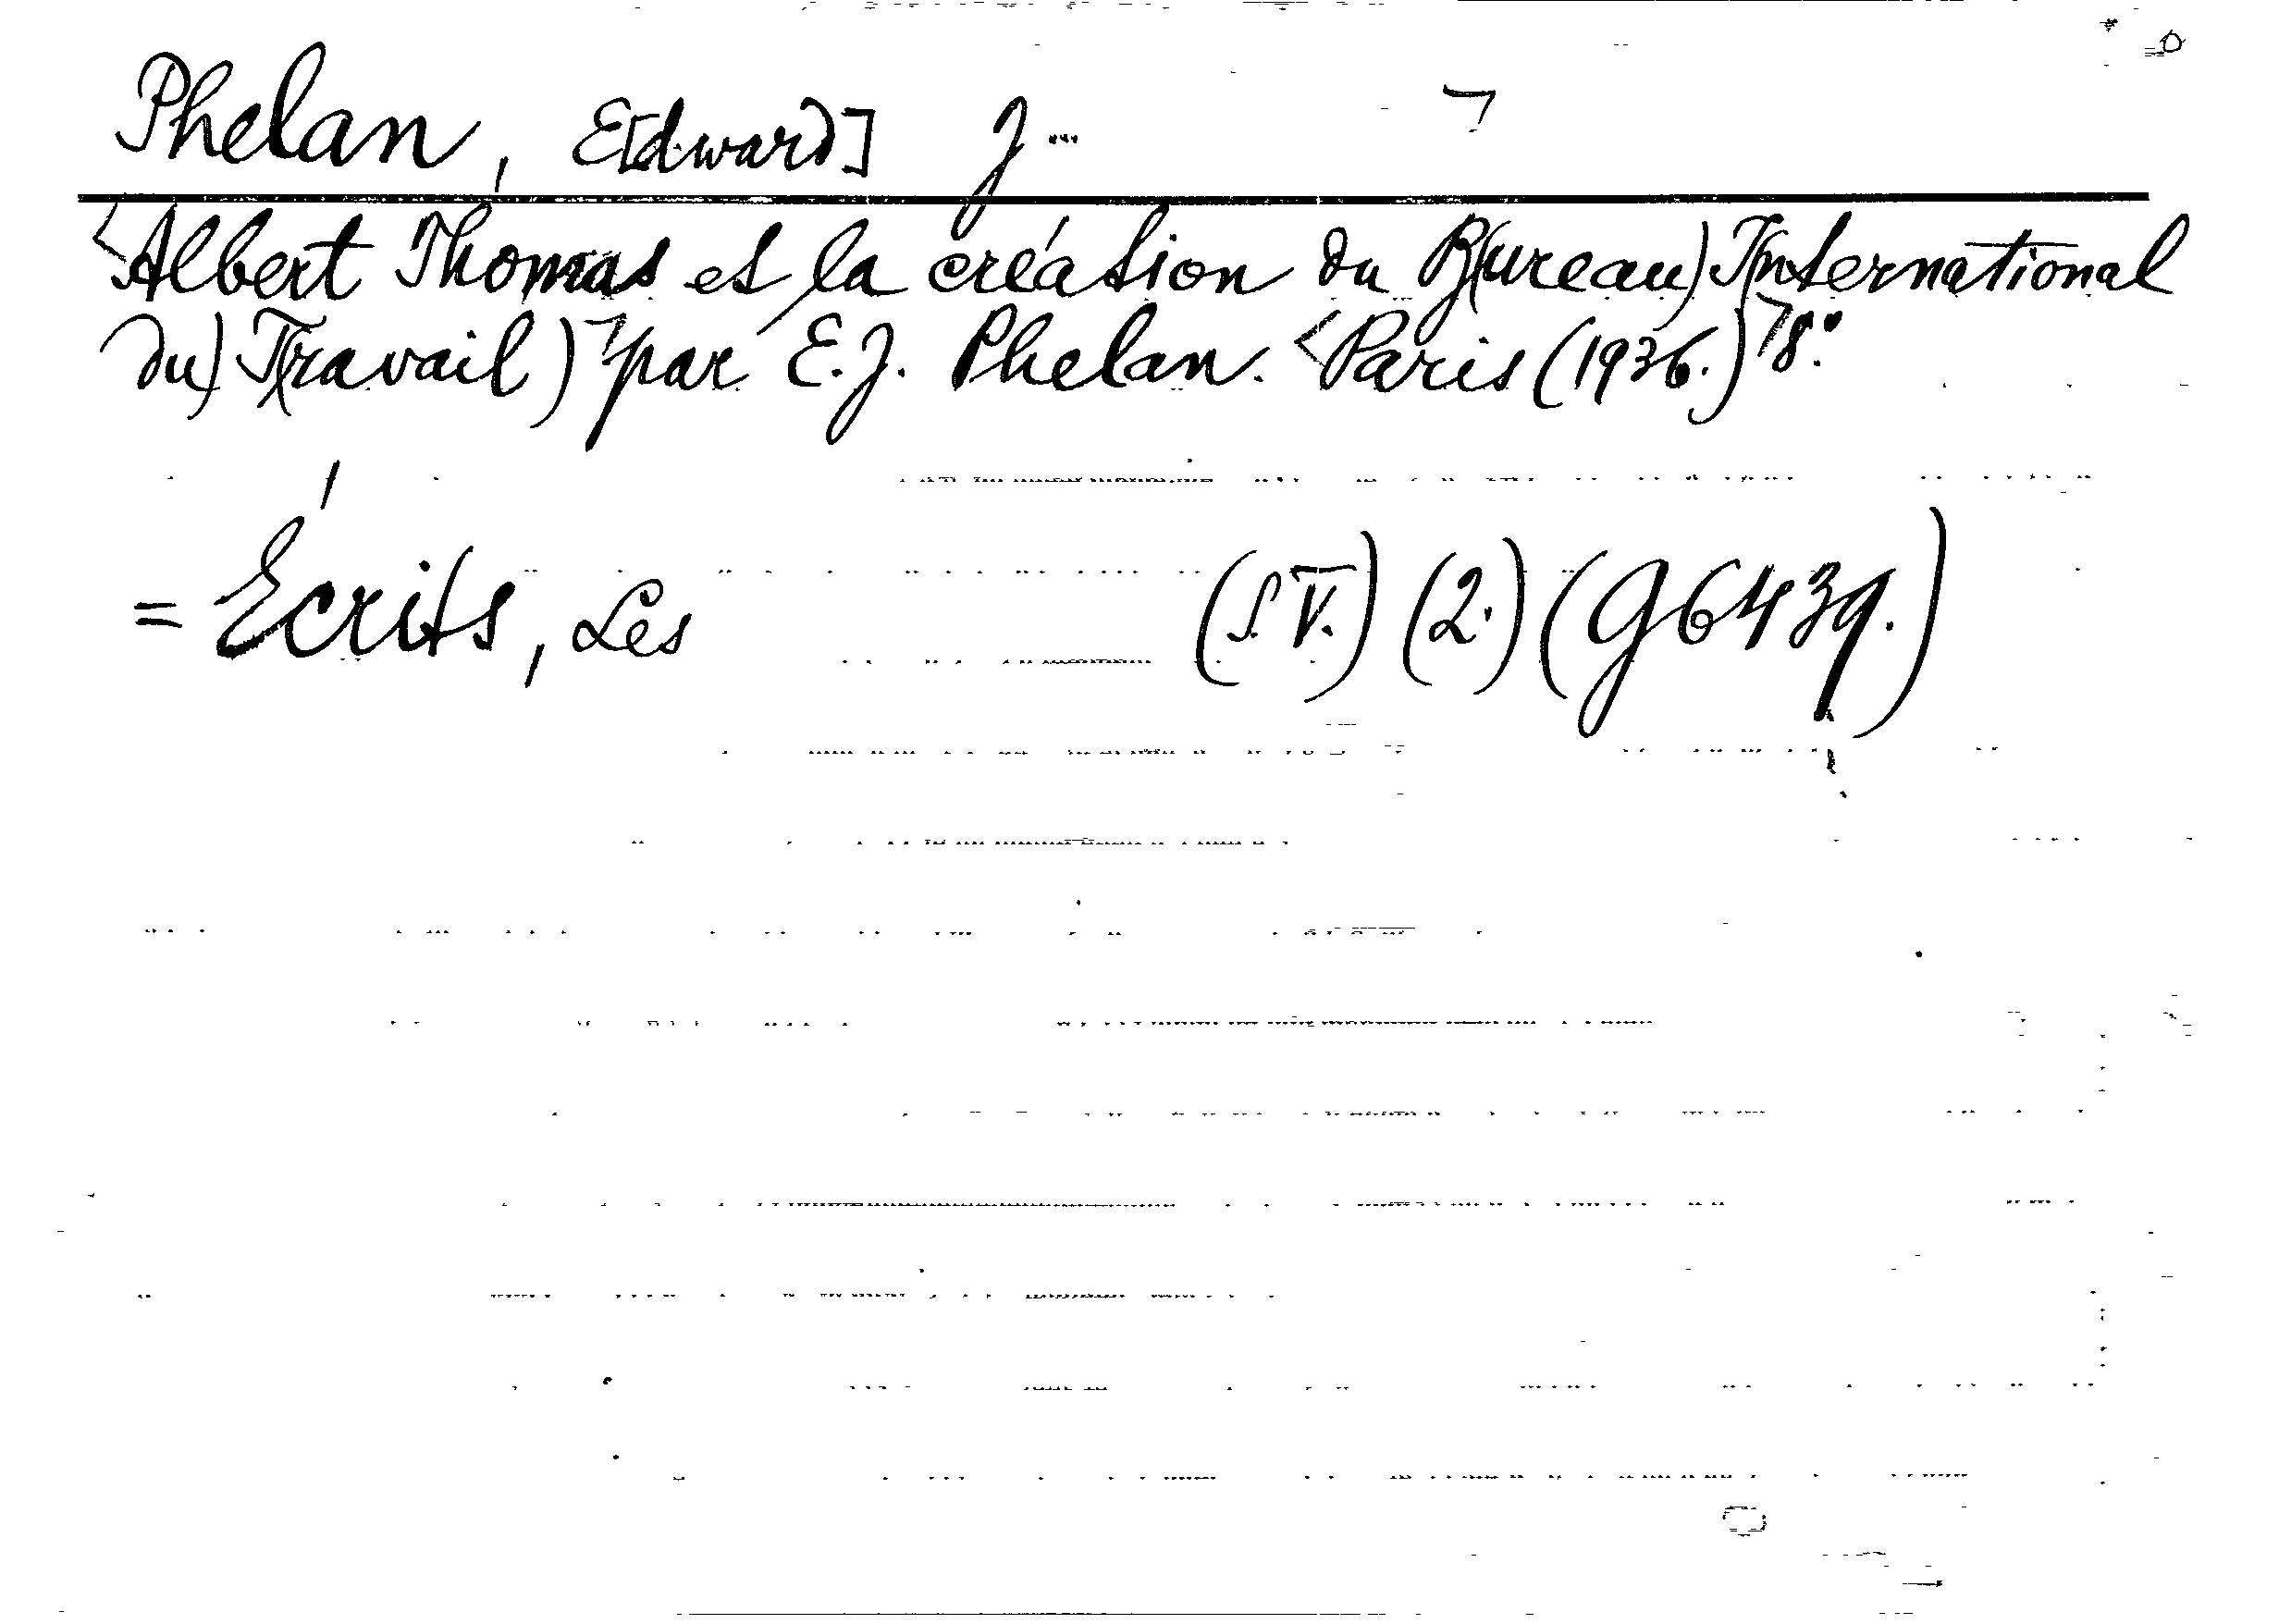 Phelan, E[dward] J...
<Albert Thomas et la création du B(ureau) I(nternational
du) T(ravail)> par E. J. Phelan. <Paris (1936.)> 8°.
= Écrits, Les (S. V.) (2.) (G6439.)